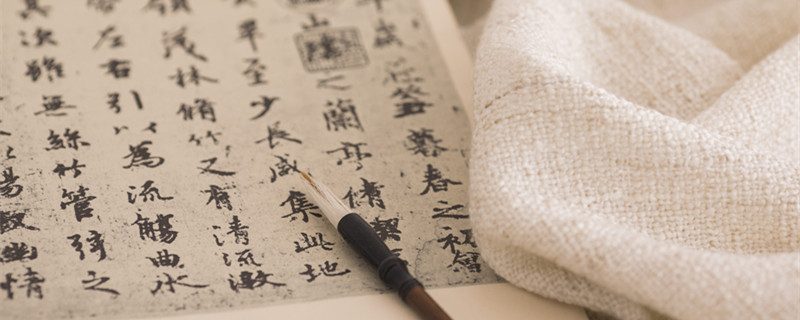 年歲在癸丑暮春之初會
山陰之蘭亭脩禊
畢至少長咸集此地
領茂林脩竹又有清流激
帶左右引以為流觴曲水
其次雖無絲竹管弦之
暢敘幽情